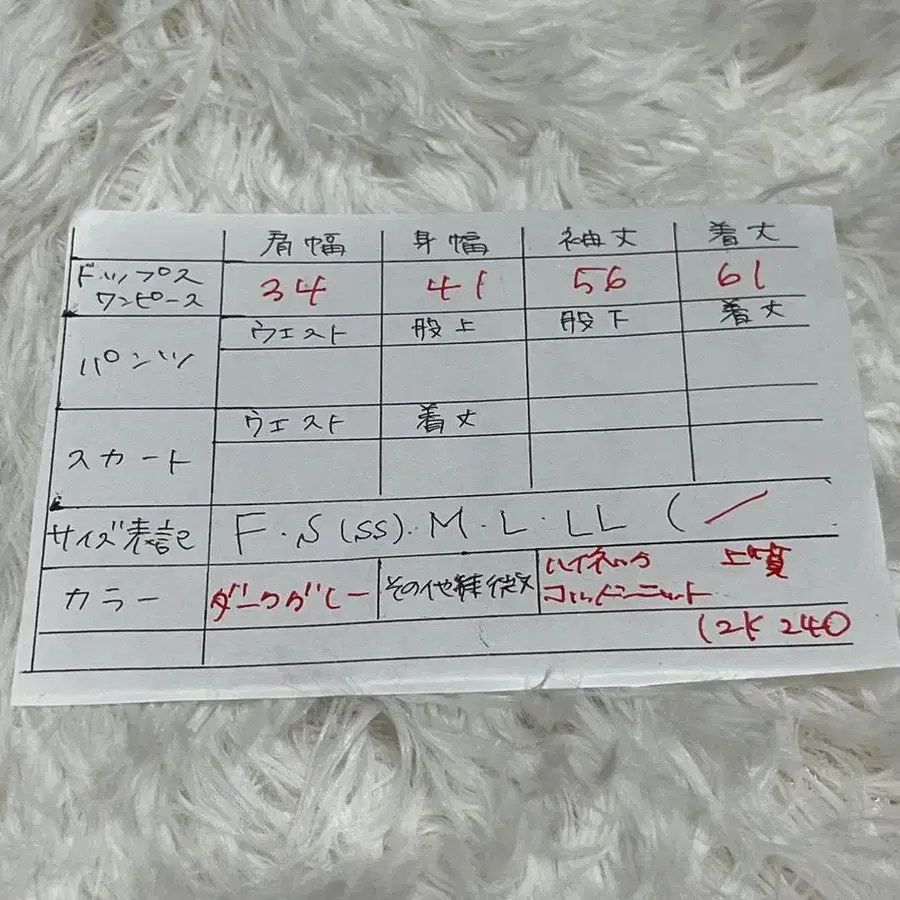 肩幅 身幅 袖丈 着丈
トップス 34 41 56 61
ワンピース
パンツ ウエスト 股上 股下 着丈
スカート ウエスト 着丈
サイズ表記 F・S(SS)・M・L・LL (
カラー ダークグレー その他特徴 ハイネック 上質
ニット
240